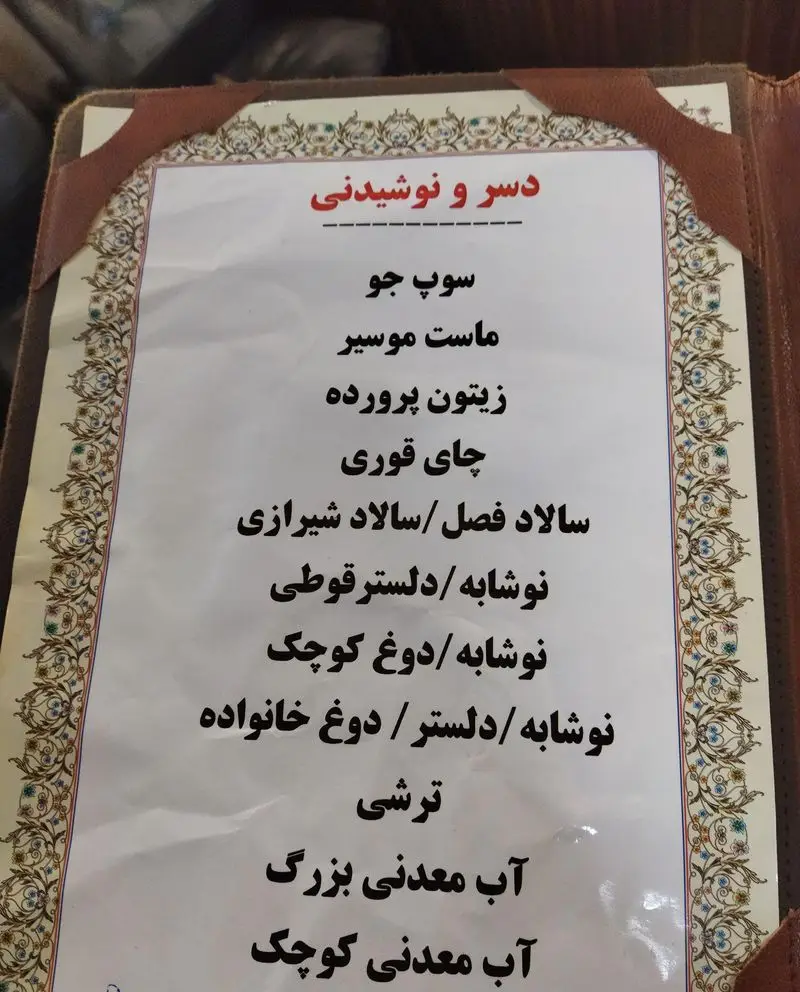 دسر و نوشیدنی
------------
سوپ جو
ماست موسیر
زیتون پرورده
چای قوری
سالاد فصل /سالاد شیرازی
نوشابه /دلسترقوطی
نوشابه /دوغ کوچک
نوشابه /دلستر / دوغ خانواده
ترشی
آب معدنی بزرگ
آب معدنی کوچک